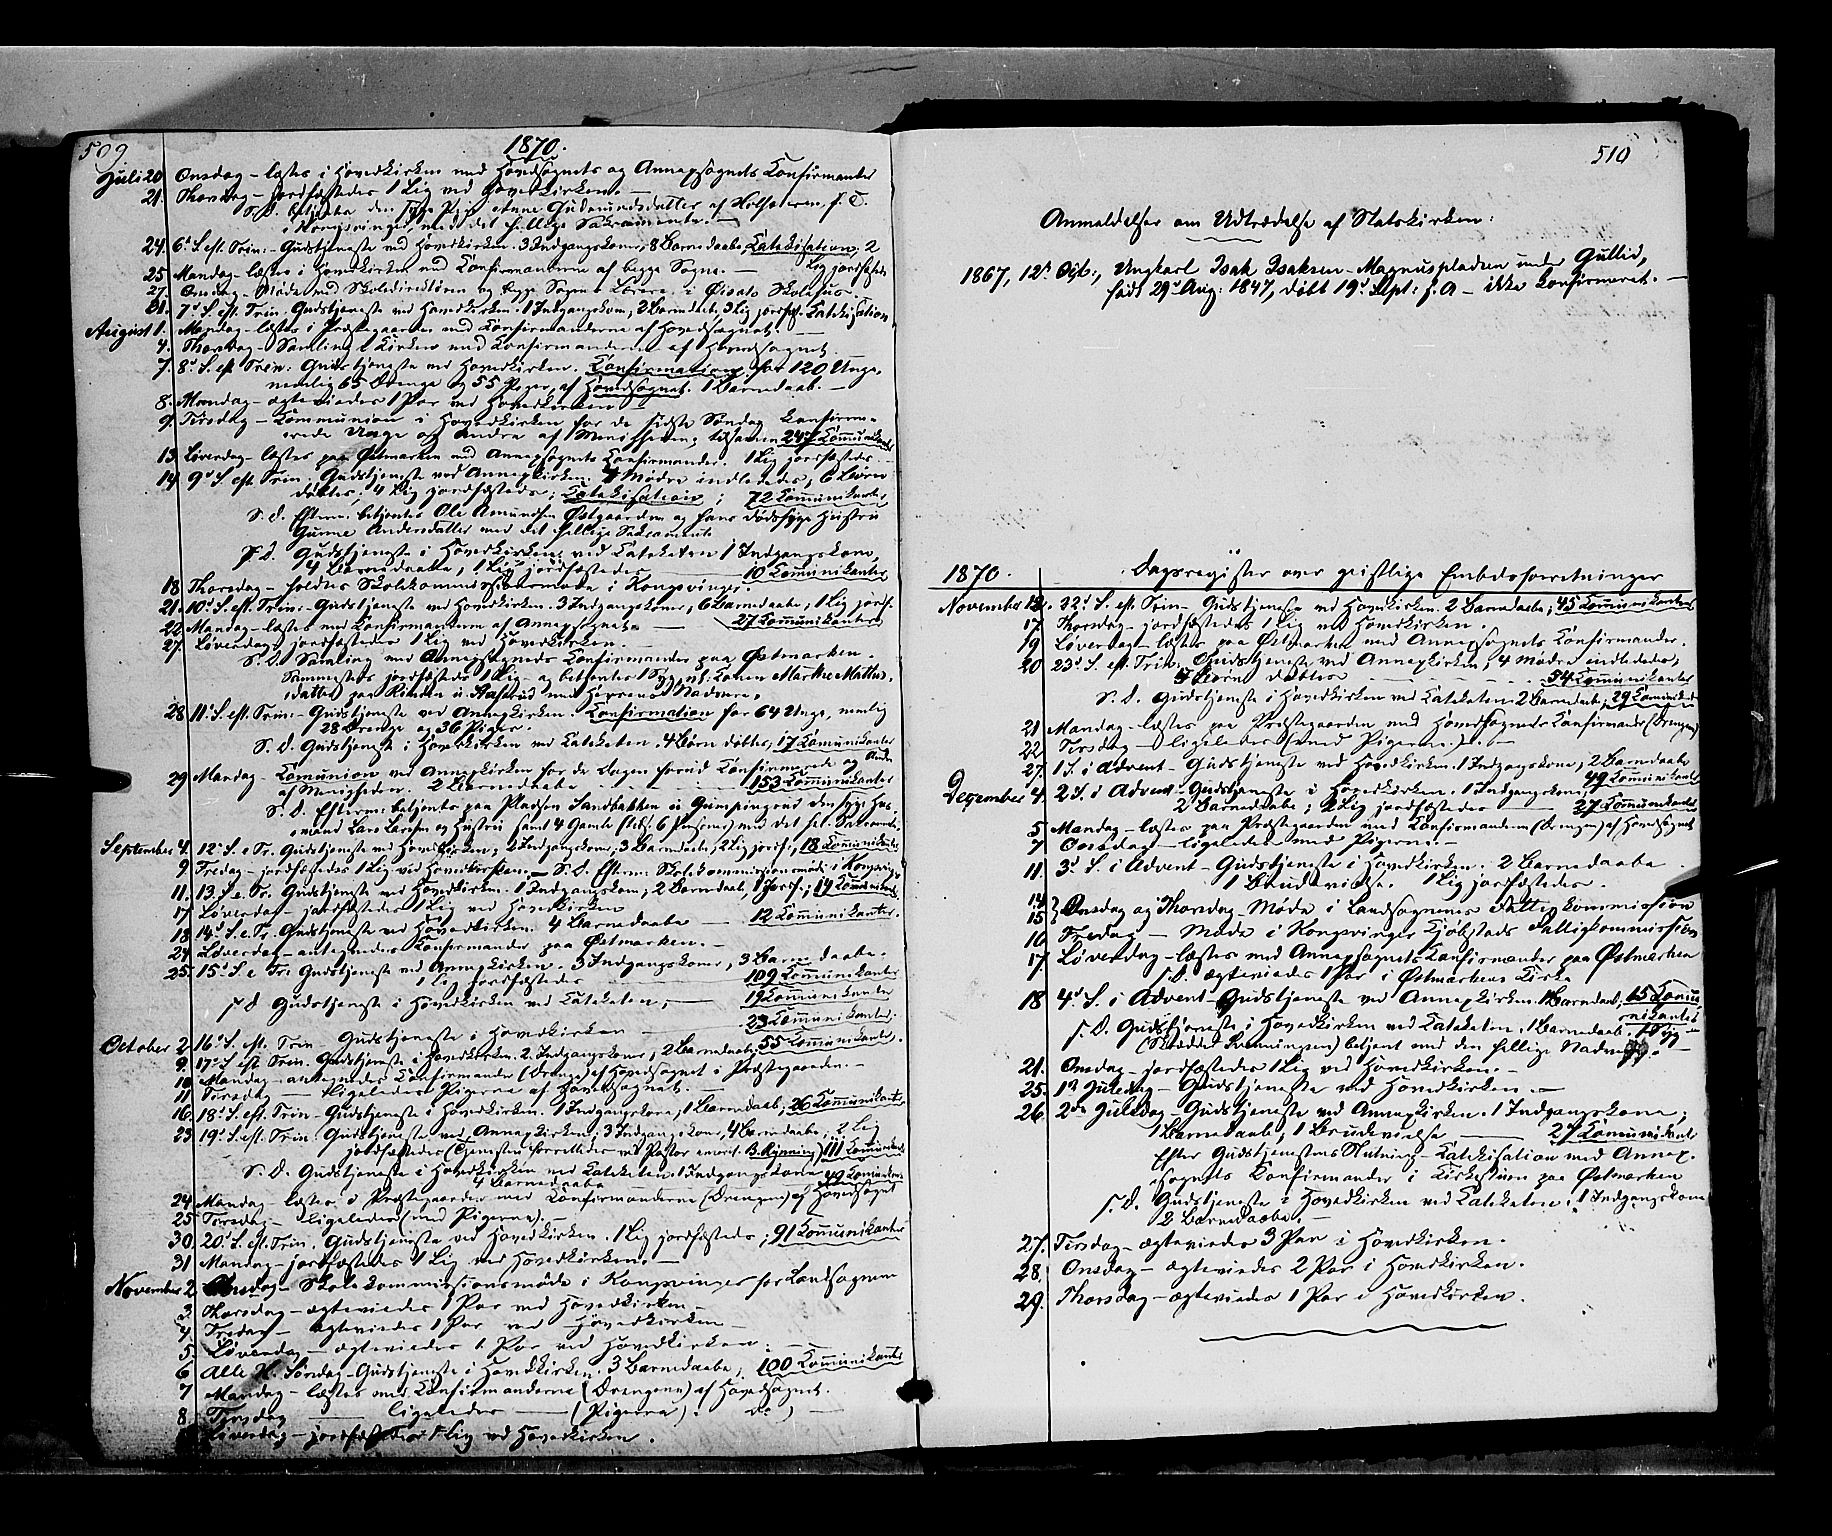 509.
1870.
Juli 20. Onsdag – læstes i Hovedkirken med Hovedsognets og Annexsognets Confirmanter
21. Thorsdag – jordfæstedes 1 Lig ved Hovedkirken. –
S. D. betjentes den syge Pige Anne Gudmundsdatter af
i Kongsvinger, med det hellige Sakramente. –
24. 6te S. eft. Trin: – Gudstjeneste ved Hovedkirken. 3 Indgangskoner, 8 Barnedaabe, Catekisation; 2
Lig jordfæstede
25. Mandag – læstes i Hovedkirken med Confirmanterne af begge Sogne. –
27. Onsdag – Møde med Skoledirektøren og begge Sognes Lærere i Skolehus
31. 7d S. eft. Trin. Gudstjeneste ved Hovedkirken. 1 Indgangskone, 2 Barnedaabe, 3 Lig jordfst. Catekisation
August 1. Mandag – læstes i Præstegaarden med Confirmanderne af Hovedsognet. –
4. Thorsdag – Samling i Kirken med Confirmanderne af Hovedsognet
7. 8d S. eft. Trin: Gudstjeneste ved Hovedkirken. Confirmation for 120 Unge,
nemlig 65 Drenge og 55 Piger, af Hovedsognet. 1 Barnedaab. –
8. Mandag – ægteviedes 1 Par ved Hovedkirken –
9. Tirsdag – Communion i Hovedkirken for de sidste Søndag Confirme-
rede Unge og Andre af Menigheden; tilsammen 247 Communikanter
13. Løverdag – læstes paa Østmarken med Annexsognets Confirmander. 1 Lig jordfæstedes –
14. 9d S. eft. Trin: Gudstjeneste ved Annexkirken. 4 Mødre indlededes, 6 Børn
døbtes, 4 Lig jordfæstedes; Catekisation; 72 Communikanter
S. D. Efterm. betjentes Ole Amundsen Østgaarden og hans dødssyge Hustru
Gunne Andersdatter med det hellige Sakramente
S. D. Gudstjeneste i Hovedkirken ved Cateketen 1 Indgangskone,
4 Barnedaabe, 1 Lig jordfæstedes – 10 Communikanter
18. Thorsdag – holdtes Skolekommissionsmøde i Kongsvinger.
21. 10d S. eft. Trin: – Gudstjeneste ved Hovedkirken. 3 Indgangskoner, 6 Barnedaabe, 1 Lig jordf.
27 Communikanter
22. Mandag – læstes med Confirmanderne af Annexsognet –
27. Løverdag – jordfæstedes 1 Lig ved Hovedkirken. –
S. D. Samling med Annexsognets Confirmander paa Østmarken.
Sammesteds jordfæstedes 1 Lig og betjentes 1 Syg, nl. Konen Marthe Mathis-
datter paa med Herrens Nadvere.
28. 11d S. eft. Trin: – Gudstjeneste ved Annexkirken. Confirmation for 64 Unge, nemlig
28 Drenge og 36 Piger.
S. D. Gudstjeneste i Hovedkirken ved Cateketen. 4 Børn døbtes, 17 Communikanter
29. Mandag – Communion ved Annexkirken for de Dagen forud Confirmerede og Andre
af Menigheden. 2 Barnedaabe – 153 Communikanter
S. D. Efterm. betjentes paa Pladsen Sandbakken den syge Hus-
mand Lars Larsen og Hustru samt 4 Gamle (tils. 6 Personer) med det hel. Sakramente.
September 4. 12d S. e. Tr. Gudstjeneste ved Hovedkirken; 2 Indgangskoner, 3 Barnedaabe, 2 Lig jordf., 18 Communikanter
9. Fredag – jordfæstedes 1 Lig ved Hovedkirken. – S. D. Efterm. Skolekommissionsmøde i Kongsvinger
11. 13. S. e. Tr. Gudstjeneste ved Hovedkirken. 1 Indgangskone, 2 Barnedaabe, 1 Jordf., 14 Communikanter
17. Løverdag – jordfæstedes 1 Lig ved Hovedkirken
18 14d S. e. Tr. Gudstjeneste ved Hovedkirken. 4 Barnedaabe – 12 Communikanter.
24. Løverdag – antegnedes Confirmander paa Østmarken. –
25. 15d S. e. Tr. Gudstjeneste ved Annexkirken. 3 Indgangskoner, 3 Barnedaabe.
1 Lig jordfæstedes – 109 Communikanter
S. D. Gudstjeneste i Hovedkirken ved Cateketen, – 19 Communikanter
October 2. 16d S. eft. Trin Gudstjeneste i Hovedkirken – 23 Communikanter.
9. 17d S. eft. Trin. Gudstjeneste i Hovedkirken. 2 Indgangskoner, 2 Barnedaab; 55 Communikanter.
10. Mandag – antegnedes Confirmander (Drenge) af Hovedsognet i Præstegaarden. –
11 Tirsdag – ligeledes Pigerne af Hovedsognet. –
16. 18d S. eft. Trin – Gudstjeneste i Hovedkirken. 1 Indgangskone, 1 Barnedaab, 26 Communikanter
23. 19d S. eft. Trin: Gudstjeneste ved Annexkirken; 3 Indgangskoner, 4 Barnedaabe, 2 Lig
jordfæstedes (Tjenesten forrettedes ved Pastor emerit. B. Rynning) 111 Communikanter
S. D. Gudstjeneste i Hovedkirken ved Cateketen 1 Indgangskone
4 Barnedaabe 49 Communikanter
24. Mandag – læstes i Præstegaarden med Confirmanderne (Drengene) af Hovedsognet
25. Tirsdag – ligeledes (med Pigerne). –
30. 20d S. eft. Trin. Gudstjeneste ved Hovedkirken. 1 Lig jordfæstedes; 91 Communikanter
31 Mandag – jordfæstedes 1 Lig ved Hovedkirken. –
November 2. Onsdag – Skolekommissionsmøde i Kongsvinger for Landsognene
3. Thorsdag – ægteviedes 1 Par ved Hovedkirken –
4. Fredag – ægteviedes 1 Par ved Hovedkirken –
5 Løverdag – ægteviedes 1 Par ved Hovedkirken. –
6 Alle H. Søndag – Gudstjeneste i Hovedkirken. 3 Barnedaabe, 100 Communikanter
7 Mandag – læstes med Confirmanderne (Drengene) af Hovedsognet.
8. Tirsdag – ligeledes – (Pigerne). do ) –
Løverdag – jordfæstedes 1 Lig ved Hovedkirken.
510
Anmeldelser om Udtrædelse af Statskirken:
1867, 12te Ungkarl Isak Isaksen – Magnuspladsen under Gullid,
født 29d Aug: 1847, døbt 19d Sept: s. A – ikke konfirmeret. –
1870. Dagsregister over geistlige Embedsforretninger
November 13. 22d S. eft. Trin – Gudstjeneste ved Hovedkirken. 2 Barnedaabe; 45 Communikanter
17. Thorsdag – jordfæstedes 1 Lig ved Hovedkirken.
19. Løverdag – læstes paa Østmarken med Annexsognets Confirmander.
20 23d S. eft. Trin. Gudstjeneste ved Annexkirken, 4 Mødre indlededes,
Børn døbtes – 54 Communikanter
S. D. Gudstjeneste i Hovedkirken ved Cateketen 2 Barnedaabe, 29 Communikant.
21 Mandag – læstes paa Præstegaarden med Hovedsognets Confirmander (Drengene)
22 Tirsdag – ligeledes (med Pigerne). –
27. 1 S. i Advent – Gudstjeneste ved Hovedkirken. 1 Indgangskone, 2 Barnedaabe
49 Communikanter
Dezember 4. 2 S. i Advent – Gudstjeneste i Hovedkirken. 1 Indgangskone;
2 Barnedaabe; 2 Lig jordfæstedes – 27 Communikanter
5 Mandag – læstes paa Præstegaarden med Confirmanderne (Drengene) af Hovedsognet
7 Onsdag – ligeledes med Pigerne. –
11 3d S. i Advent – Gudstjeneste i Hovedkirken. 2 Barnedaabe
1 Brudevielse. 1 Lig jordfæstedes.
14 } Onsdag og Thorsdag – Møde i Landsognenes Fattigkommission
15
16 Fredag – Møde i Kongsvinger Kjøbstads Fattigkommission
17 Løverdag – læstes med Annexsognets Confirmander paa Østmarken
S. D. ægteviedes 1 Par i Østmarkens Kirke
18 4d S. i Advent – Gudstjeneste ved Annexkirken. 1 Barnedaab, 15 Commu-
nikanter
S. D. Gudstjeneste i Hovedkirken ved Cateketen. 1 Barnedaab. 1 Syg
(Skrædder Svenningsen) betjent med den hellige Nadvere. –
21. Onsdag – jordfæstedes 1 Lig ved Hovedkirken. –
25. 1ste Juledag – Gudstjeneste ved Hovedkirken. –
26. 2den Juledag – Gudstjeneste ved Annexkirken. 1 Indgangskone;
1 Barnedaab; 1 Brudevielse – 27 Communikanter
Efter Gudstjenestens Slutning – Catekisation med Annex-
sognets Confirmander i Kirkestuen paa Østmarken
S. D. Gudstjeneste i Hovedkirken ved Cateketen. 1 Indgangskone
2 Barnedaabe. –
27. Tirsdag – ægteviedes 3 Par i Hovedkirken.
28. Onsdag – ægteviedes 2 Par i Hovedkirken.
29. Thorsdag – ægteviedes 1 Par i Hovedkirken.